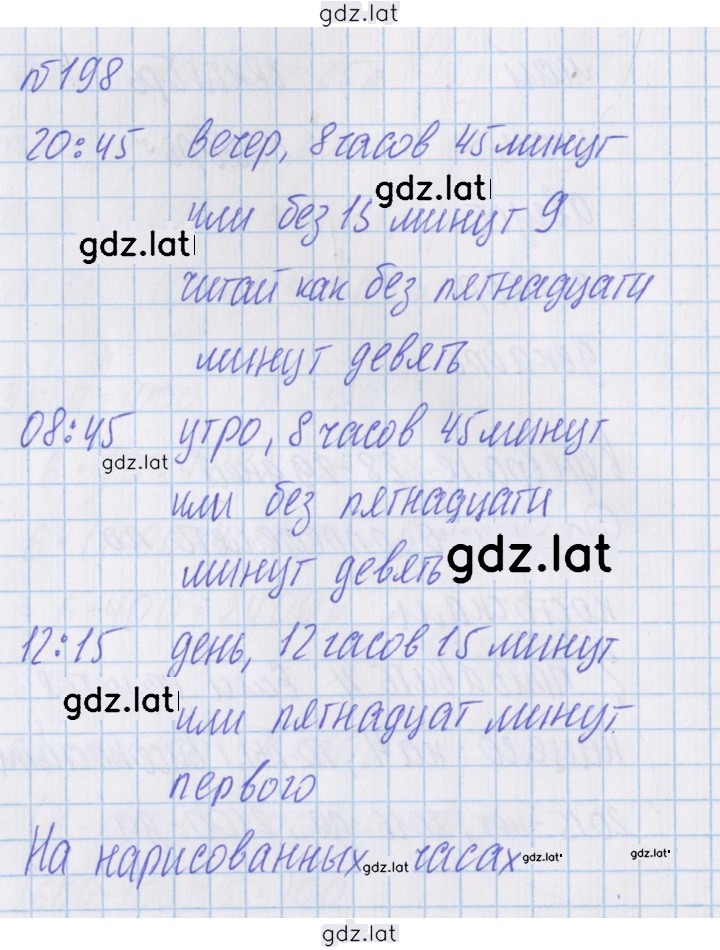 gdz.lat
№198
20:45 вечер, 8 часов 45 минут
gdz.lat
или без 15 минут 9
gdz.lat
читай как без пятнадцати
минут девять
08:45 утро, 8 часов 45 минут
gdz.lat
или без пятнадцати
минут девять gdz.lat
12:15 день, 12 часов 15 минут
gdz.lat
или пятнадцат минут
первого
На нарисованных gdz.lat часах gdz.lat gdz.lat
gdz.lat